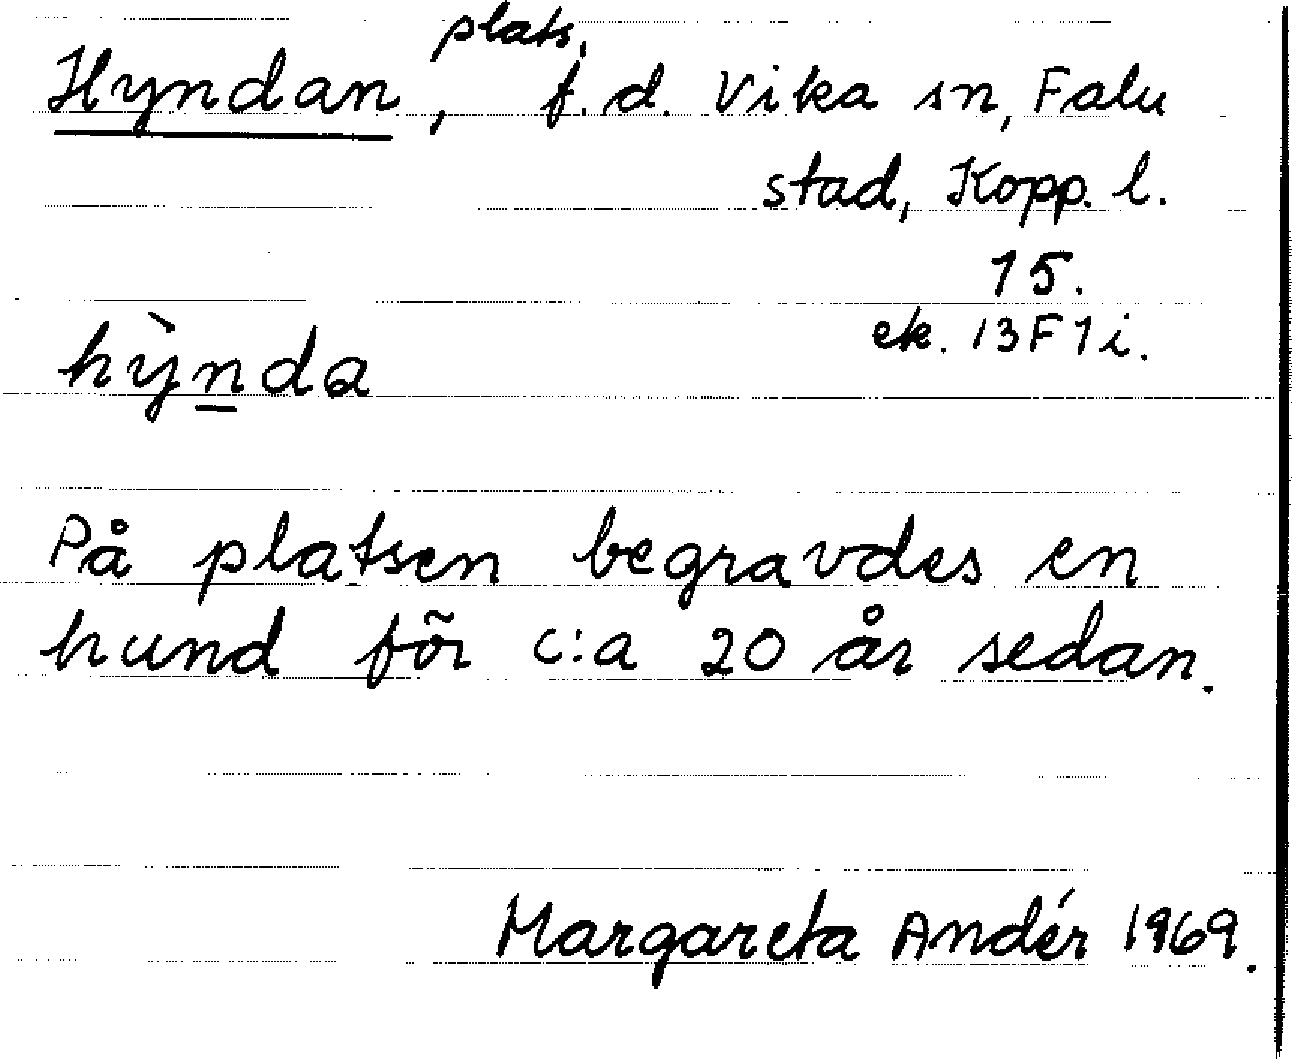 Hyndan, plats, f.d. Vika sn, Falu
stad, Kopp. l.
15.
ek. 13F1i.
hỳnda
På platsen begravdes en
hund för c:a 20 år sedan.
Margareta Andér 1969.